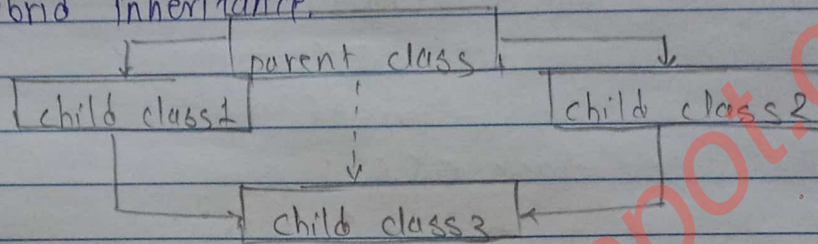 brid Inheritance.
parent class
child class1 child class2
child class3